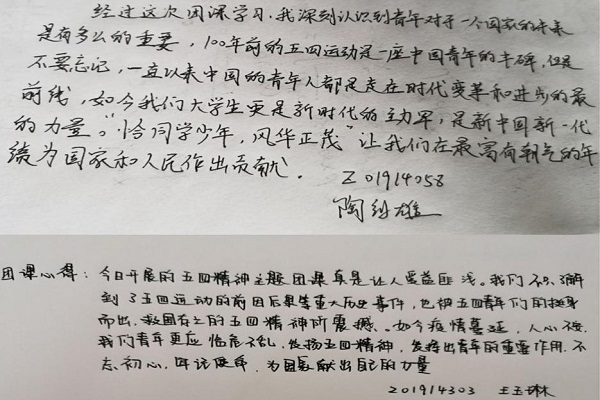 经过这次团课学习,我深刻认识到青年对于一个国家的未来
是有多么的重要,100年前的五四运动是一座中国青年的丰碑,但是
不要忘记,一直以来中国的青年人都是走在时代变革和进步的最
前线,如今我们大学生更是新时代的主力军,是新中国新一代
的力量。"恰同学少年,风华正茂"让我们在最富有朝气的年
级为国家和人民作出贡献.
201914058
陶 雄
团课心得:今日开展的五四精神主题团课真是让人受益匪浅。我们不只了解
到了五四运动的前因后果等重大历史事件,也被五四青年们的挺身
而出,救国存亡的五四精神所震撼。如今疫情蔓延,人心不安
我们青年更应临危不乱,发扬五四精神,发挥出青年的重要作用.不
忘初心,牢记使命,为国家献出自己的力量
201914303 王玉琳